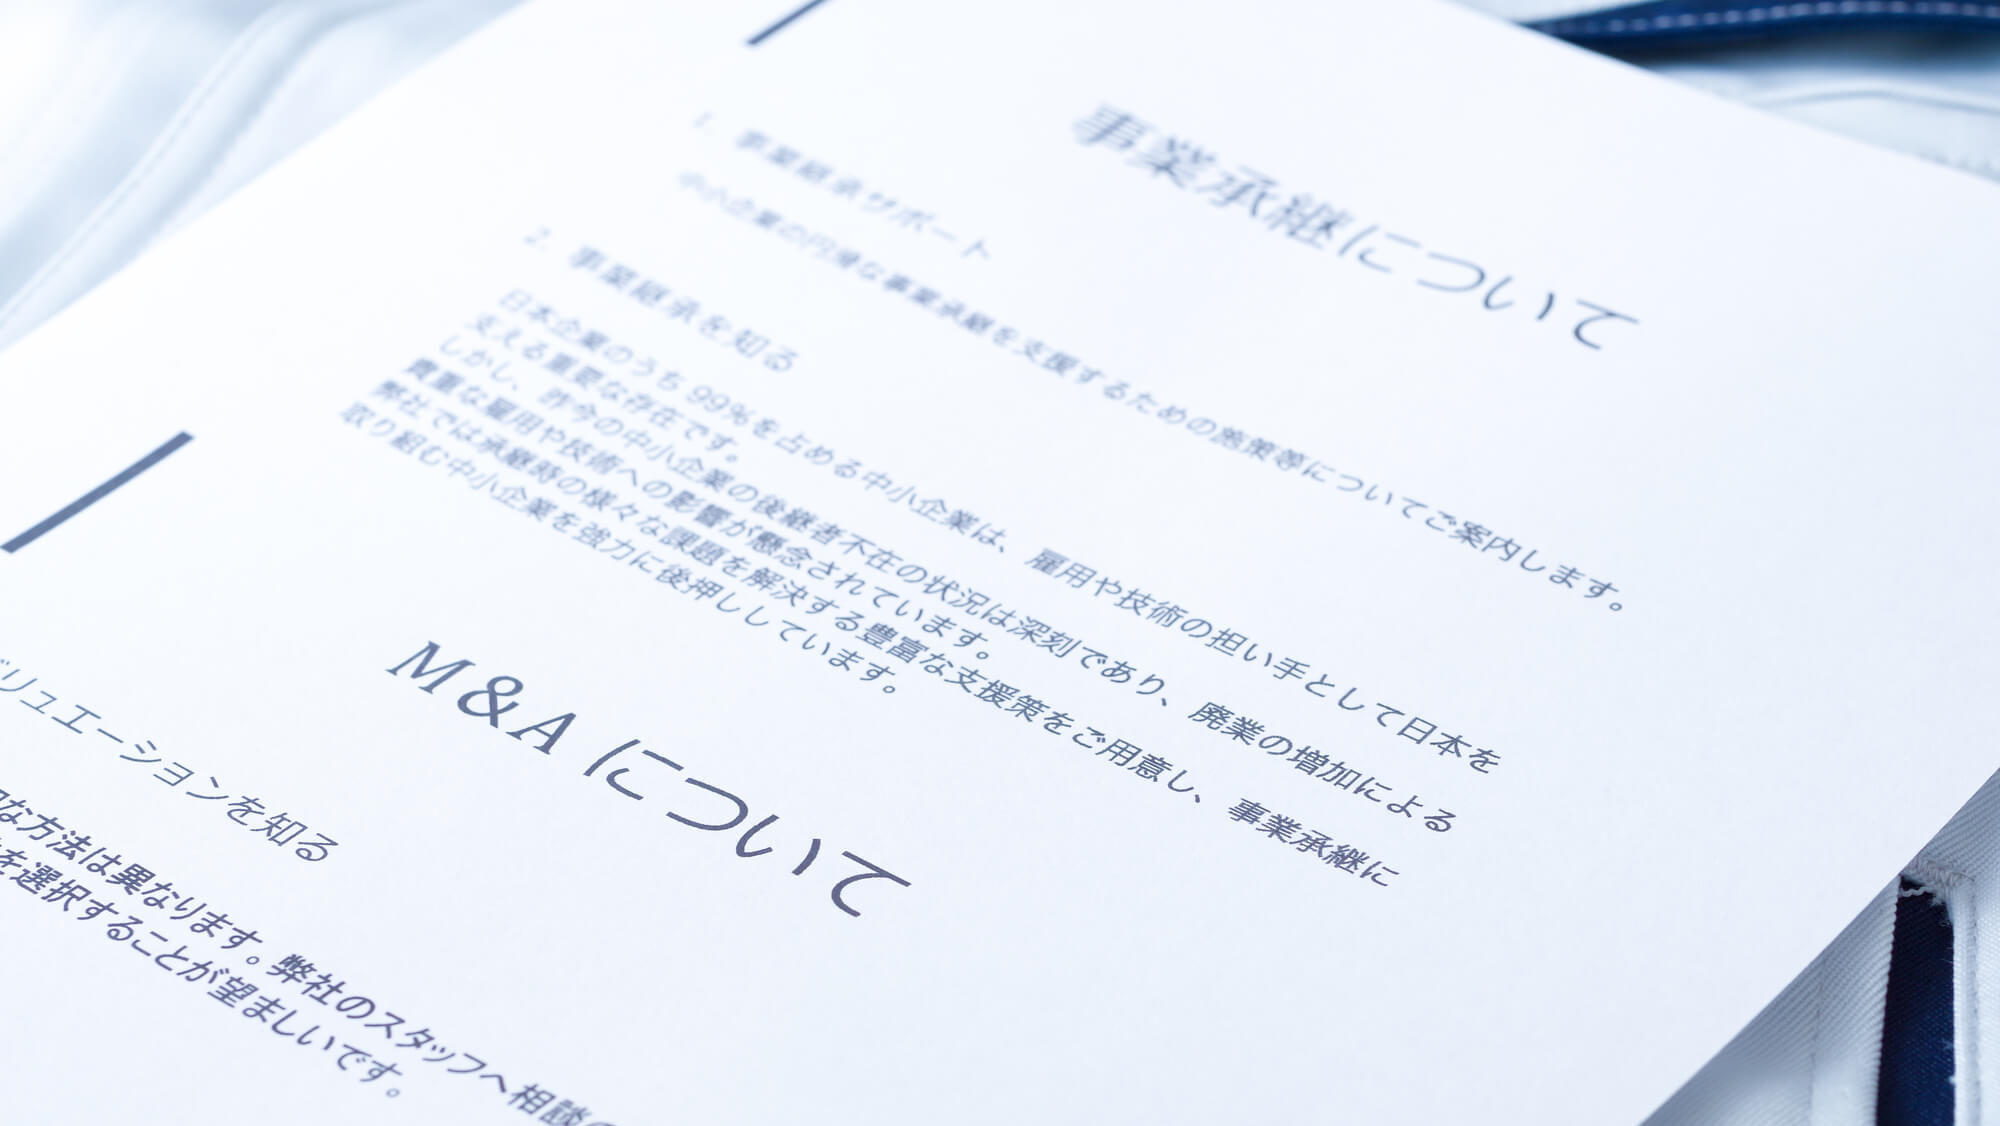 事業承継について
1. 事業継承サポート
中小企業の円滑な事業承継を支援するための施策等についてご案内します。
2. 事業継承を知る
日本企業のうち 99%を占める中小企業は、雇用や技術の担い手として日本を
支える重要な存在です。
しかし、昨今の中小企業の後継者不在の状況は深刻であり、廃業の増加による
貴重な雇用や技術への影響が懸念されています。
弊社では承継時の様々な課題を解決する豊富な支援策をご用意し、事業承継に
取り組む中小企業を強力に後押ししています。
M&A について
リュエーションを知る
な方法は異なります。弊社のスタッフへ相談
を選択することが望ましいです。